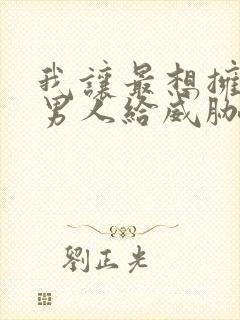 我讓最想擁
男人給威脅
劉正光